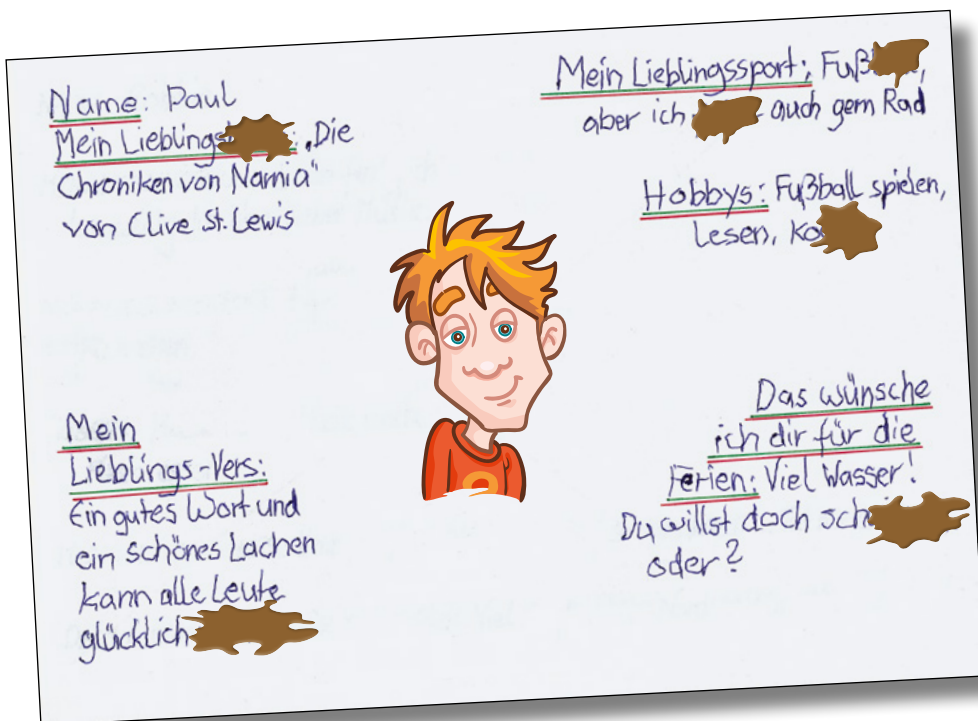 Name: Paul
Mein Lieblings :„Die
Chroniken von Narnia"
von Clive St. Lewis
Mein
Lieblings-Vers:
Ein gutes Wort und
ein schönes Lachen
kann alle Leute
glücklich
Mein Lieblingssport: Fuß ,
aber ich auch gern Rad
Hobbys: Fußball spielen,
Lesen,
Das wünsche
ich dir für die
Ferien: Viel Wasser!
Du willst doch
oder?